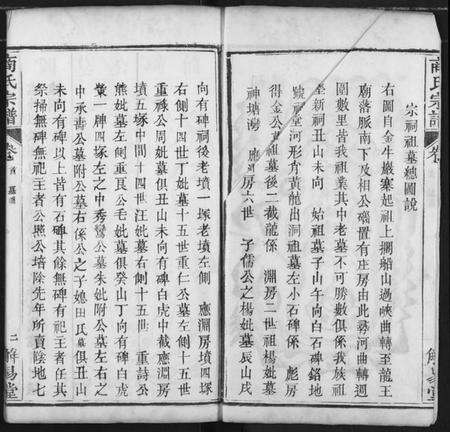 商氏宗譜
宗祠祖墓總圖說
右圖自金牛嚴寨起祖上擱船山過峽曲轉至龍王
廟落脈南下及相公磂置有庄房由此塟河曲轉週
圍數里皆我祖業其中老墓不可勝數俱係我族祖
坐新祠丑山未向 始祖墓子山午向白石碑銘地
號祠堂河形有黃龍出洞祖墓左小石碑係 彪房
得金公祖墓後二截龍係 淵房二世祖楊妣墓
神塘灣 應淵房六世 子儒公之楊妣墓辰山戌
向有碑祠後老墳一塚老墳左側 應淵房墳四塚
右側十四世丁妣墓十五世重仁公墓左側十五世
重祿公周妣墓俱丑山未向有碑白虎中截應淵房
墳五塚中間十四世汪妣墓右側十五世 重詩公
熊妣墓左側重艮公毛妣墓俱癸山丁向有碑白虎
嶪一牌四塚左之中秀鸞公墓朱妣附公墓左右之
中承耑公墓附公墓右係公之子媳田氏墓俱丑山
未向有碑以上皆有石碑其餘無碑有祀王者任其
祭掃無碑無祀王者公照公培除先年所賣陰地七
商氏宗譜
卷首 墓圖
二
解易堂